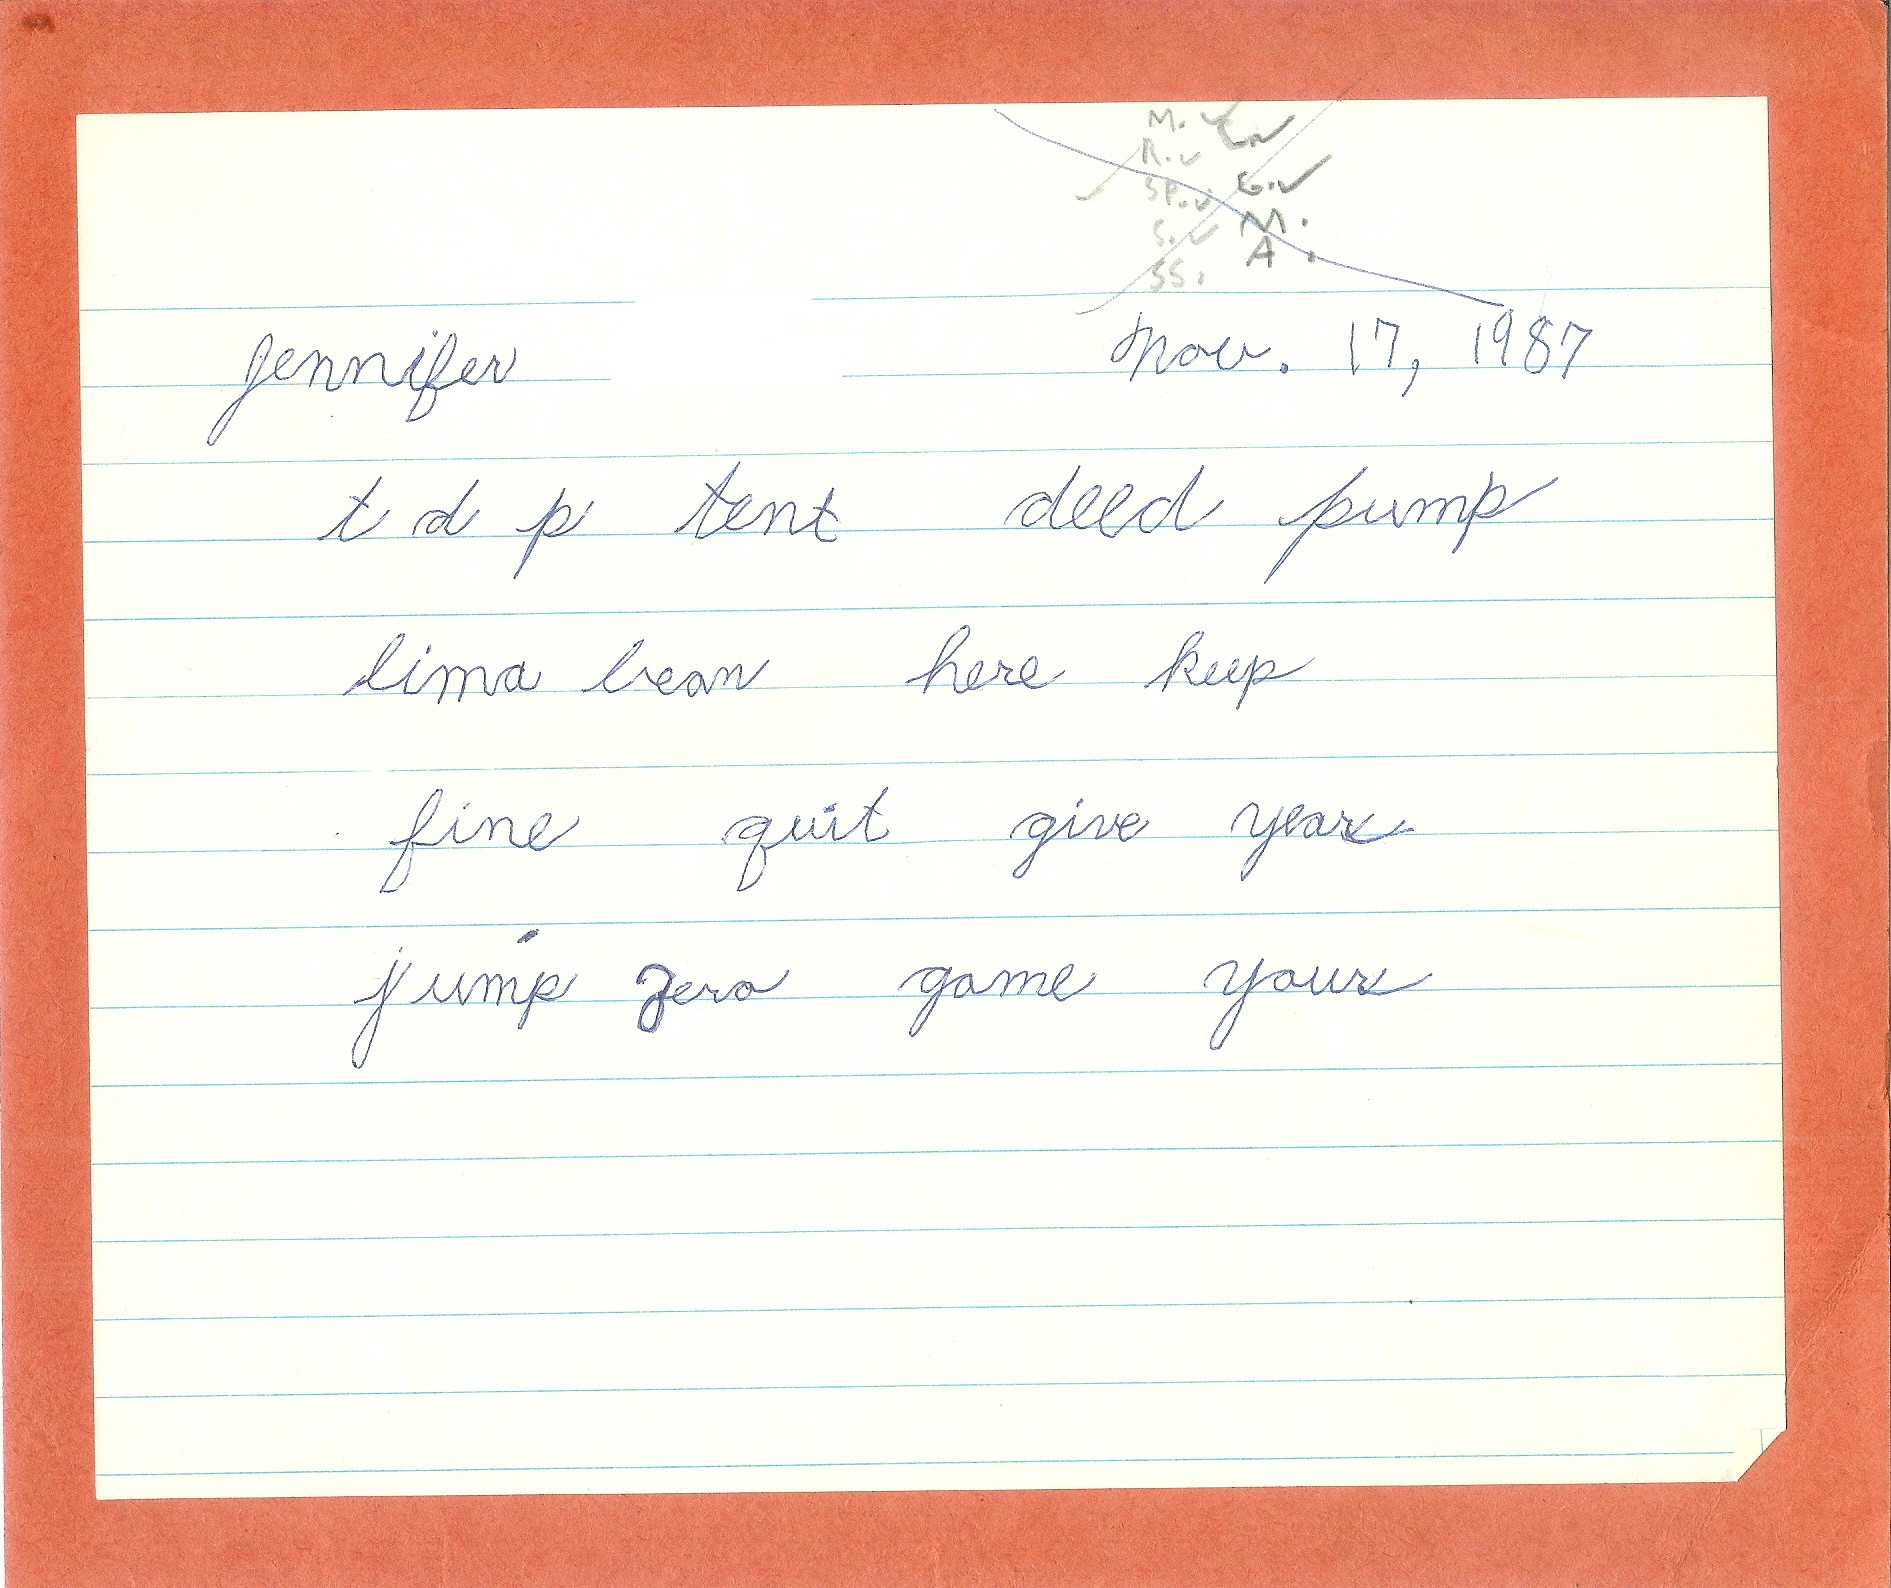 M. ✓ L. ✓
R. ✓
SP. ✓ G. ✓
S. ✓ M.
SS. A.
Jennifer Nov. 17, 1987
t d p tent deed pump
lima bean here keep
fine quit give year
jump zero game your